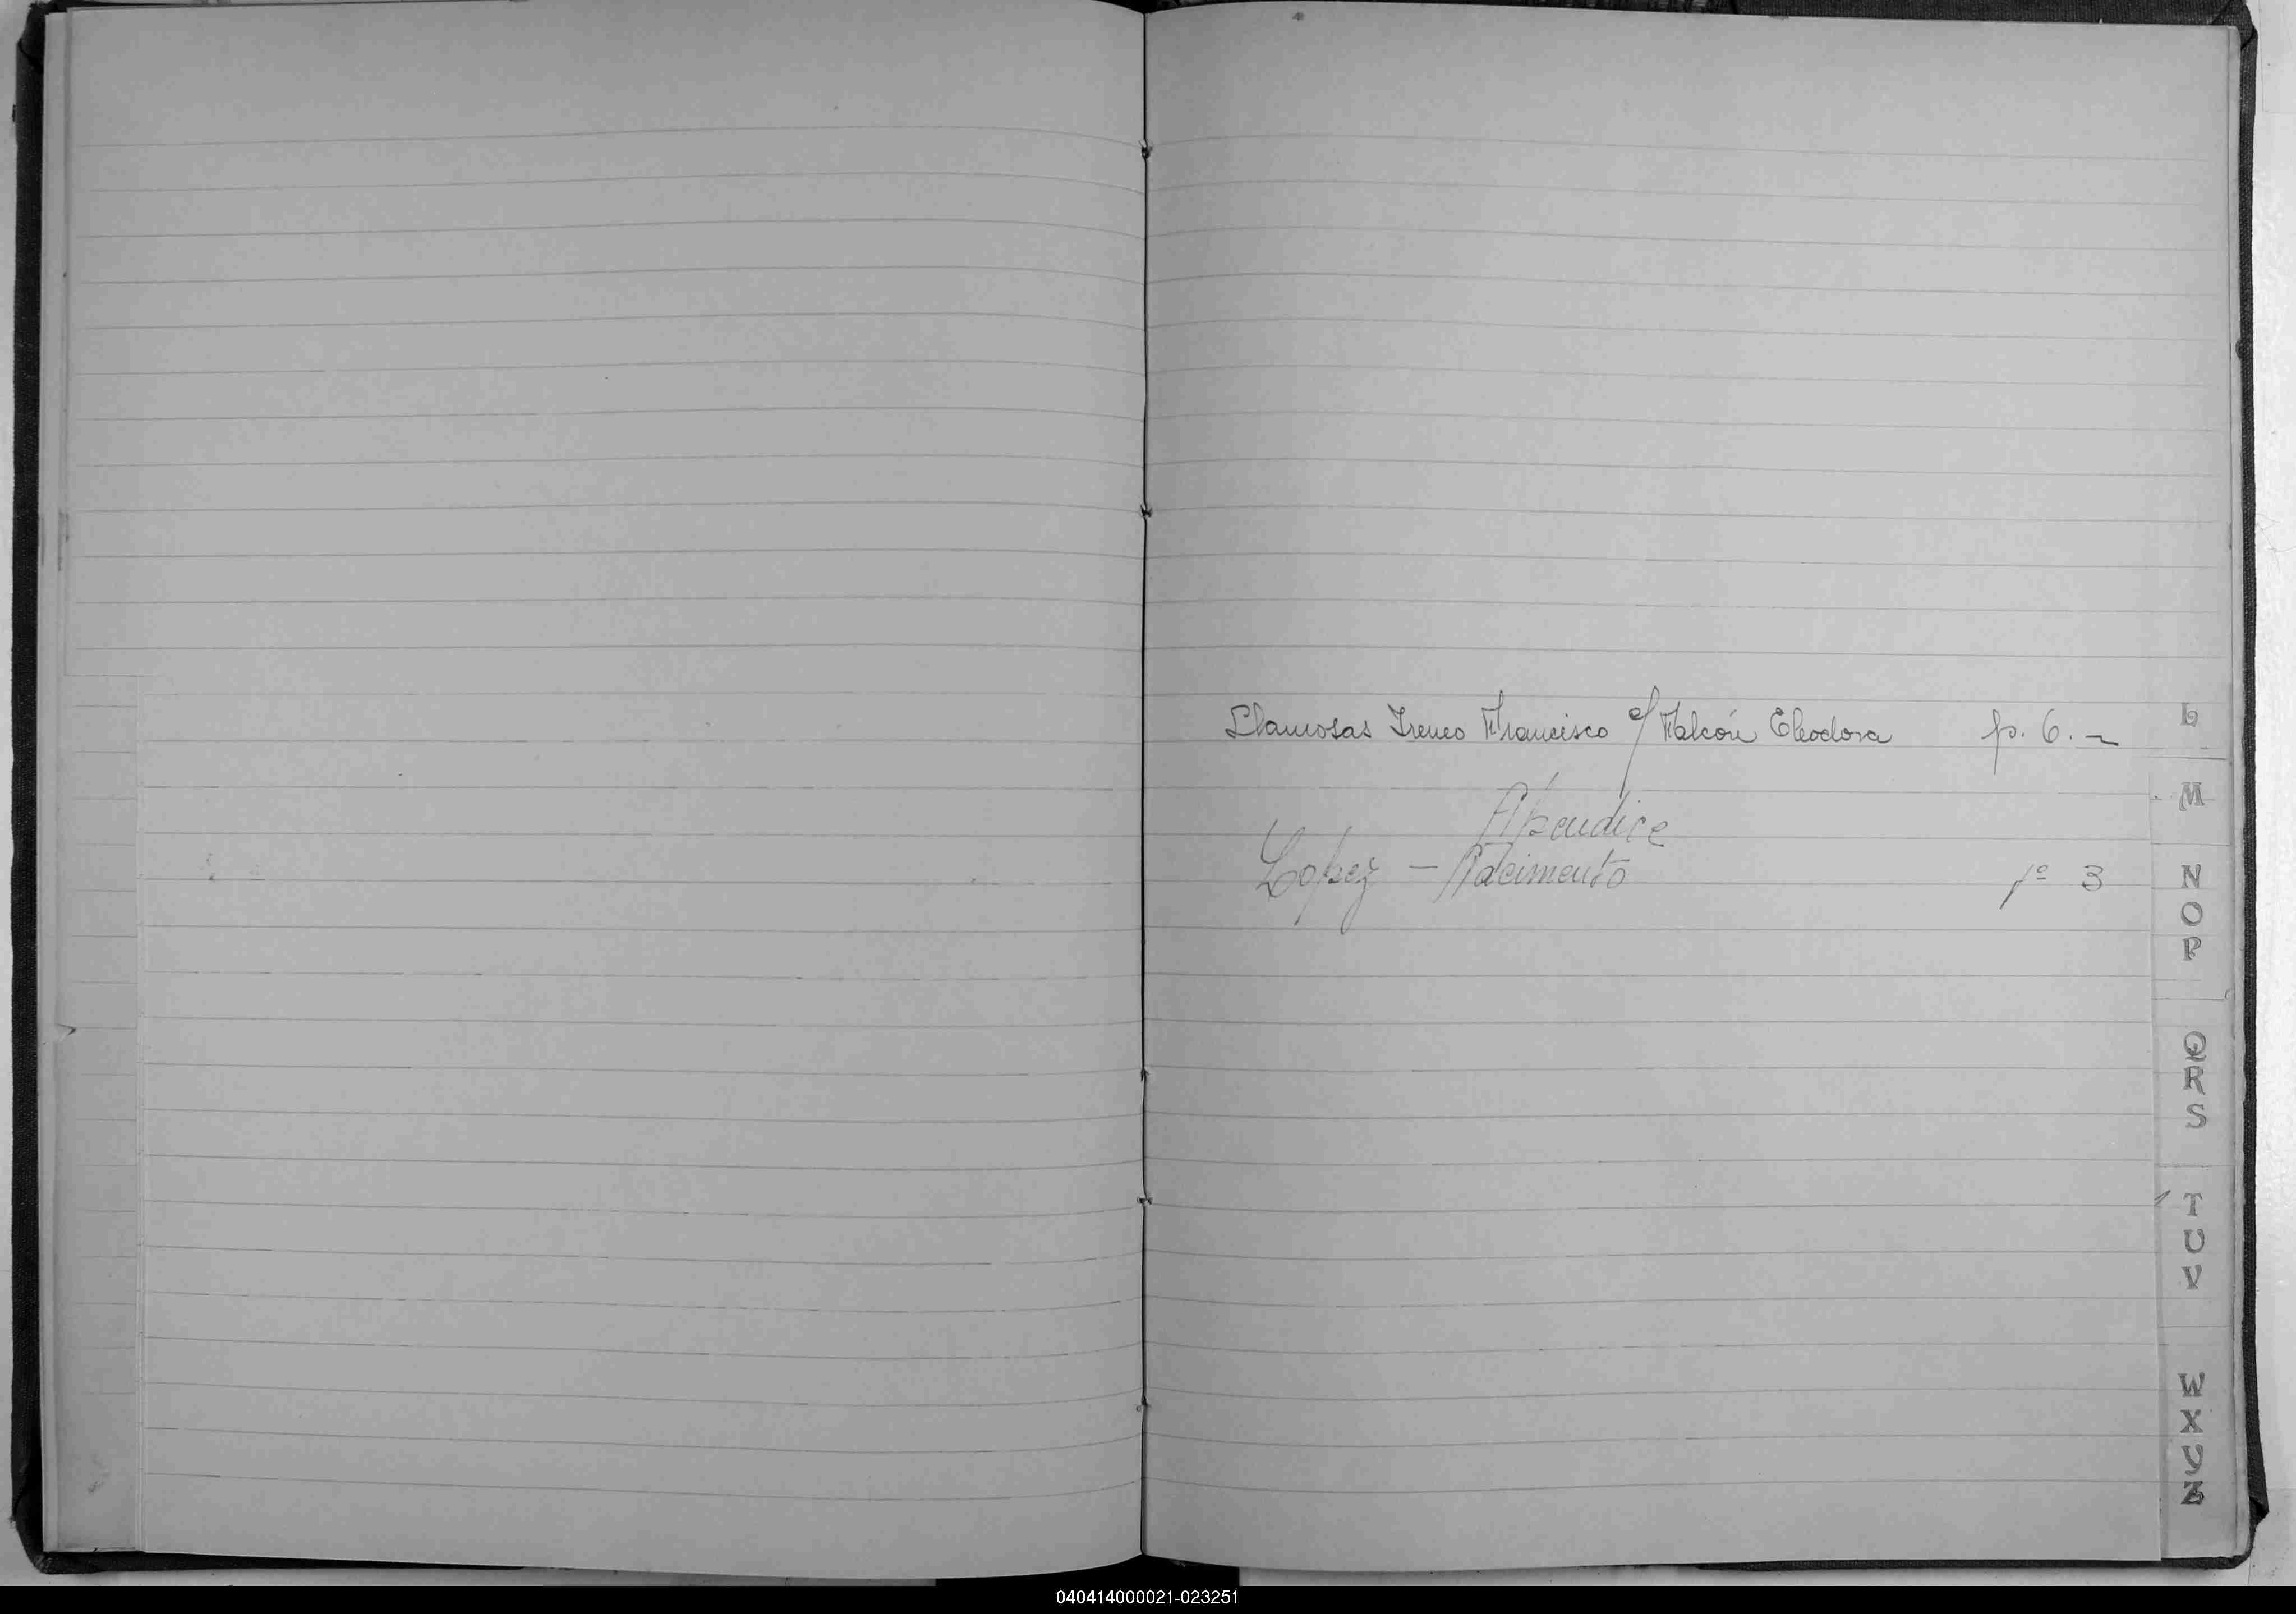 Llamosas Ireneo Francisco c/ Falcón Eleodora p. 6. –
Apendice
Lopez – Nacimento fº 3
L
M
N
O
P
Q
R
S
T
U
V
W
X
Y
Z
040414000021-023251